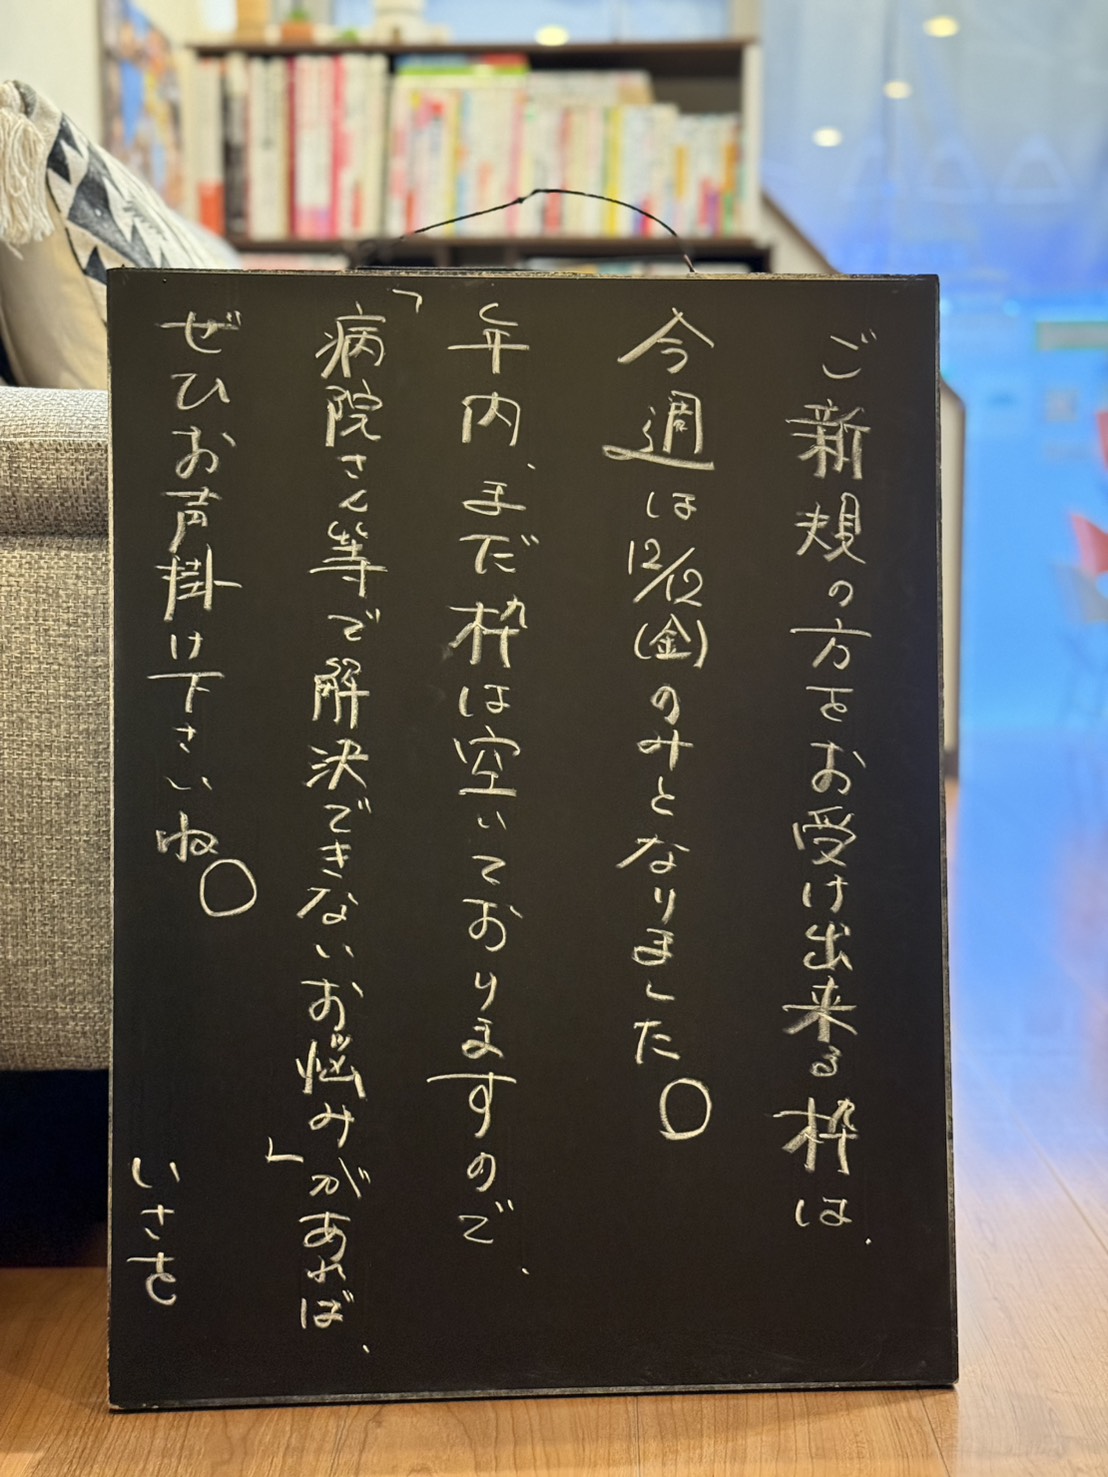 ご新規の方をお受け出来る枠は、
今週は12/12(金)のみとなりました。
年内、まだ枠は空いておりますので、
「病院さん等で解決できないお悩み」があれば、
ぜひお声掛け下さいね。
いさを